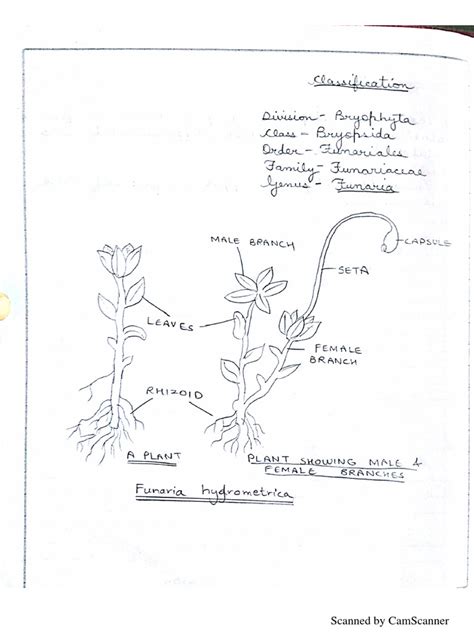 Classification
Division - Bryophyta
Class - Bryopsida
Order - Funariales
Family - Funariaceae
Genus - Funaria
MALE BRANCH
CAPSULE
SETA
LEAVES
FEMALE
BRANCH
RHIZOID
A PLANT
PLANT SHOWING MALE &
FEMALE BRANCHES
Funaria hydrometrica
Scanned by CamScanner